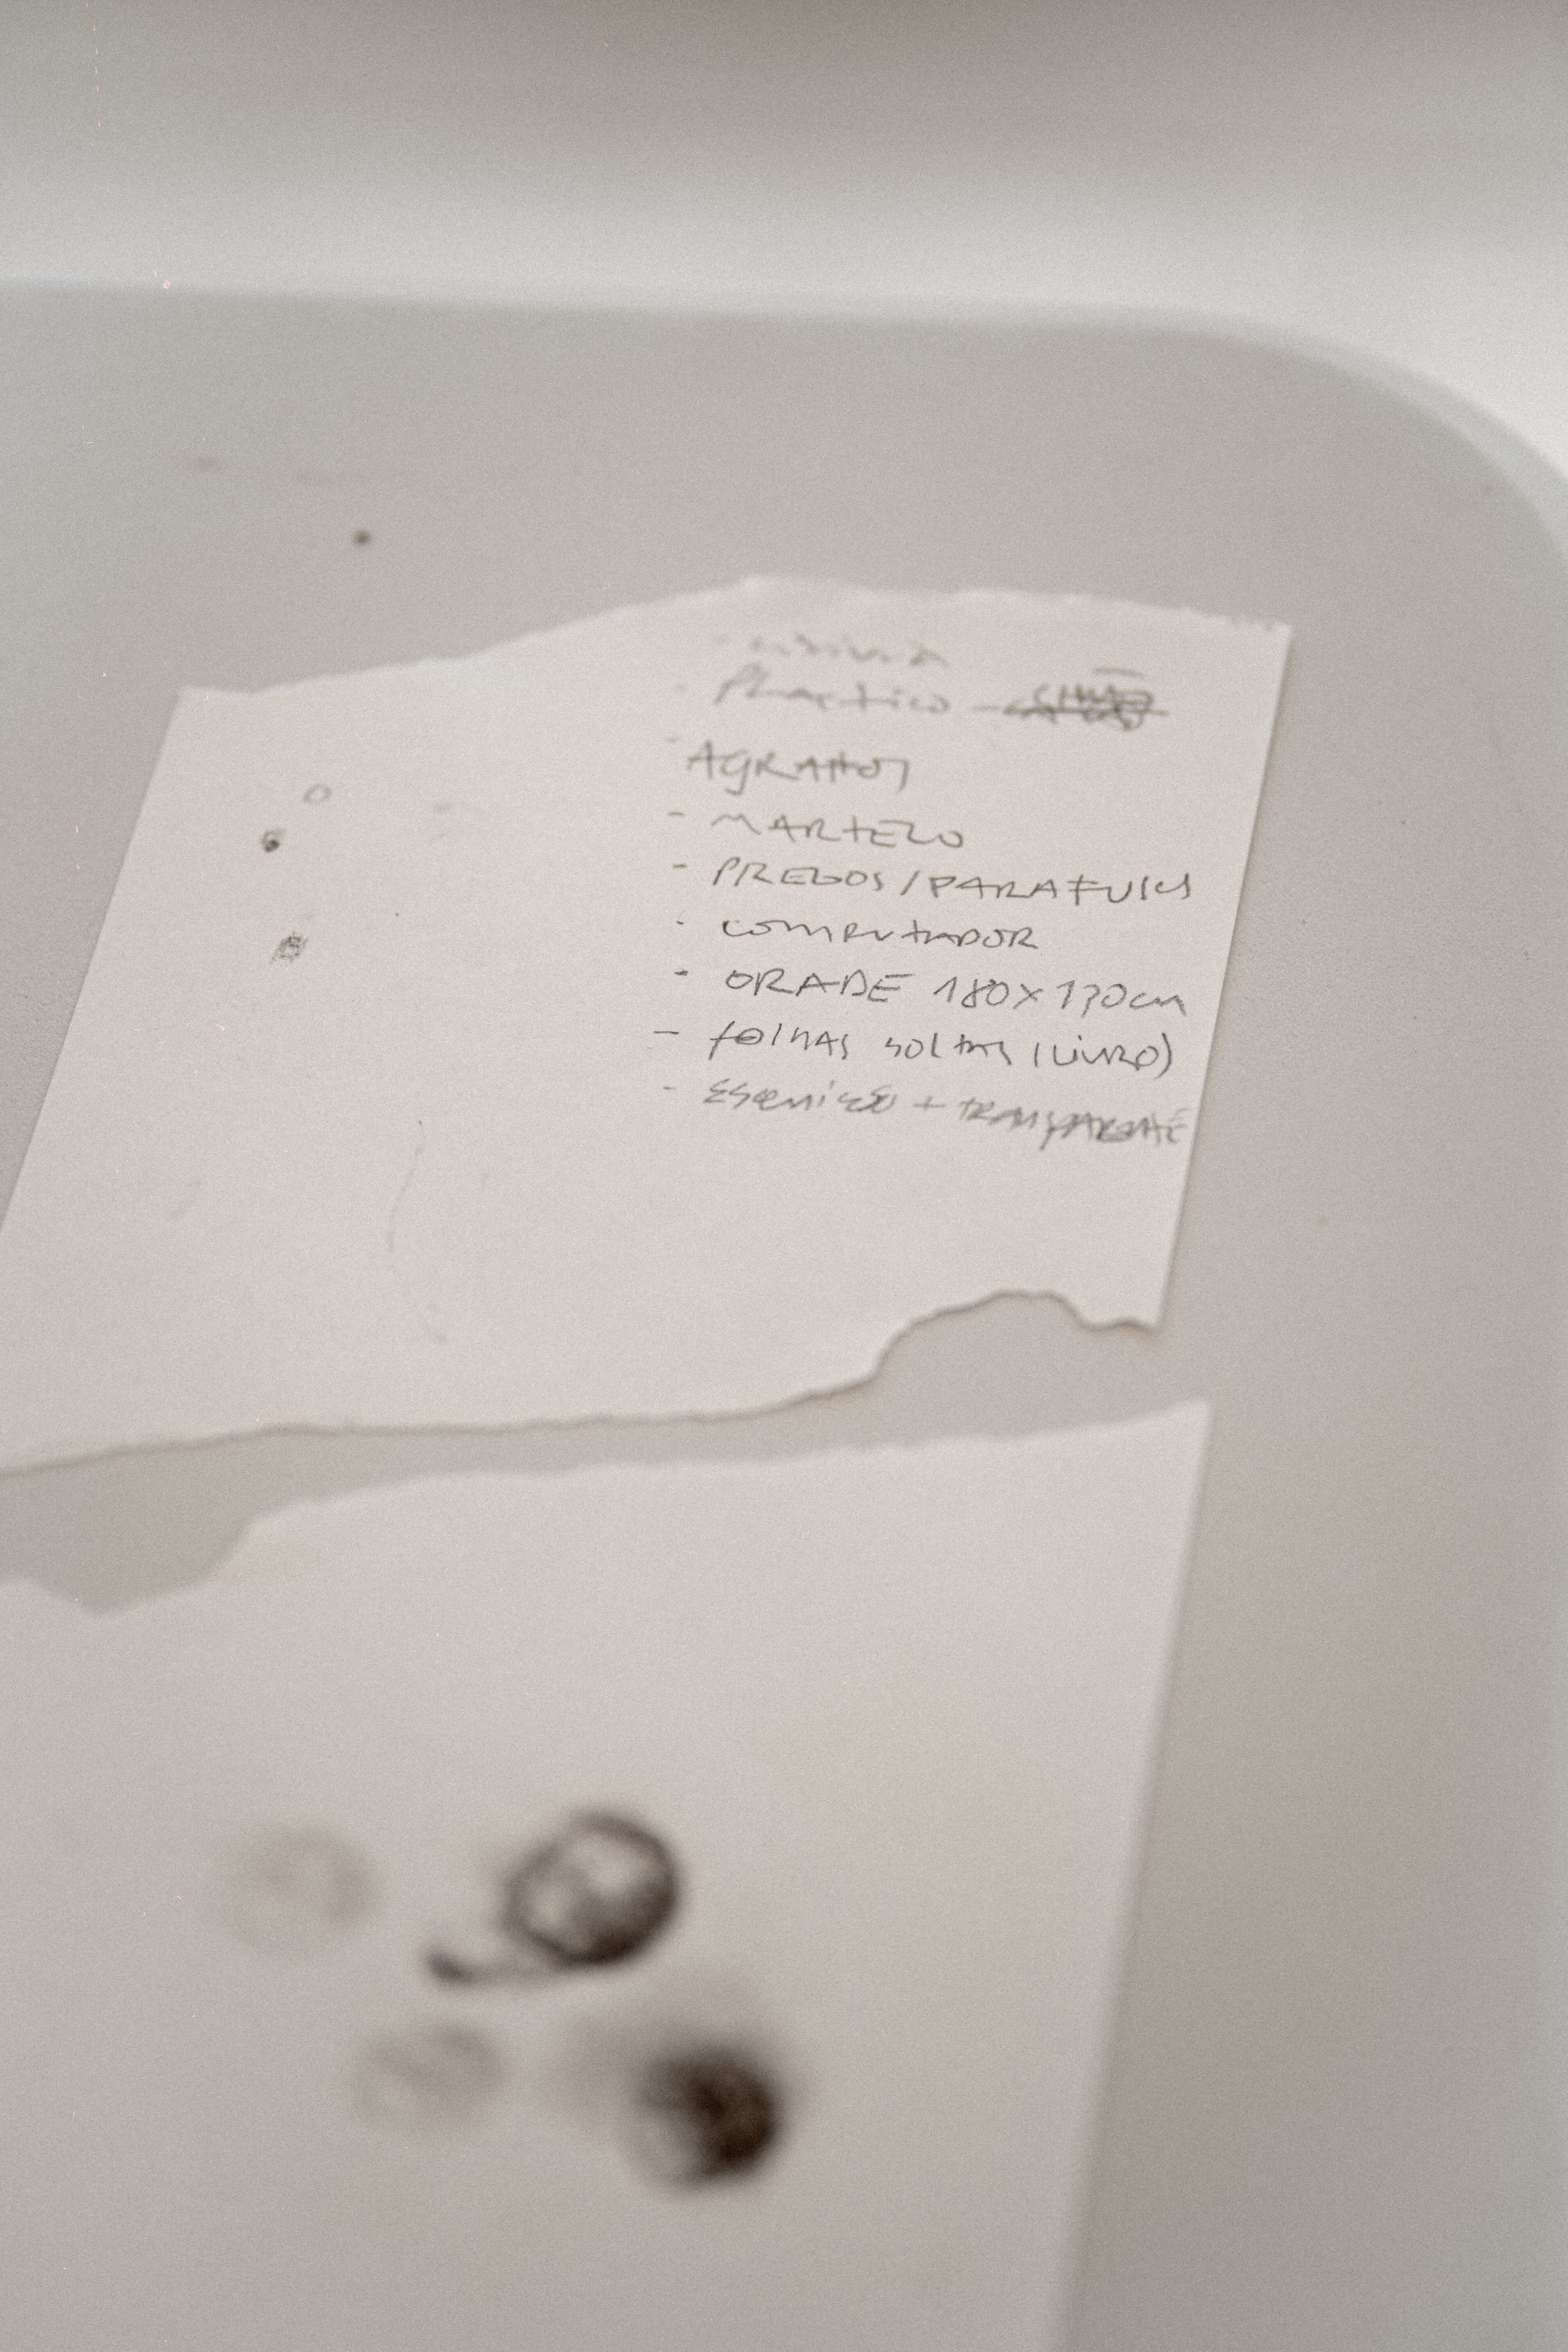 - Plastico -
- AGRAFOS
- MARTELO
- PREGOS / PARAFUSOS
- COMPUTADOR
- GRADE 180 X 130 cm
- FOLHAS SOLTAS (LIVRO)
- + TRANSPARENTE